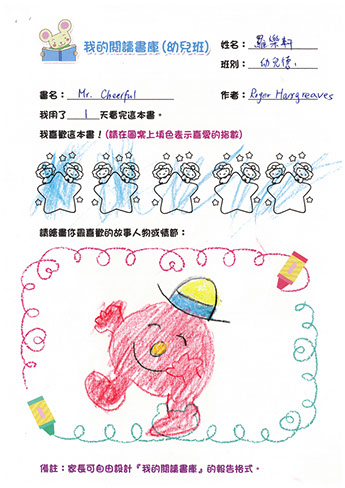 我的閱讀書庫(幼兒班) 姓名：羅樂軒
班別：幼兒德
書名：Mr. Cheerful 作者：Roger Hargreaves
我用了 1 天看完這本書。
我喜歡這本書！(請在圖案上填色表示喜愛的指數)
請繪畫你最喜歡的故事人物或情節：
備註：家長可自由設計『我的閱讀書庫』的報告格式。